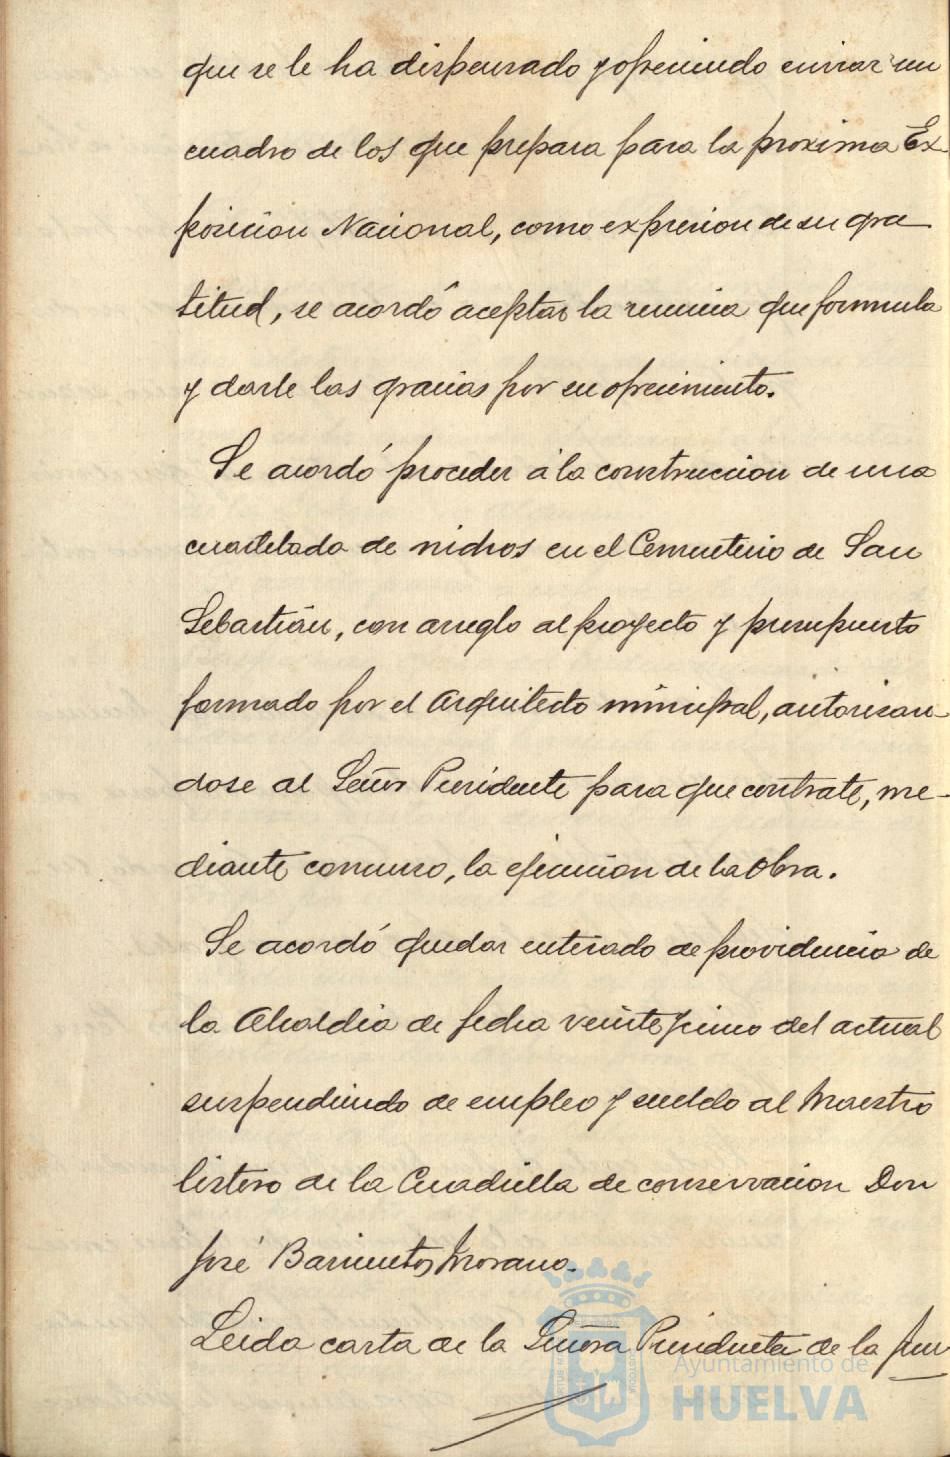 que se le ha dispensado y ofreciendo enviar un
cuadro de los que prepara para la proxima Ex-
posicion Nacional, como expresion de su gra-
titud, se acordó aceptar la renuncia que formula
y darle las gracias por su ofrecimiento.
Se acordó proceder á la construccion de una
cuartelada de nichos en el Cementerio de San
Sebastián, con arreglo al proyecto y presupuesto
formado por el Arquitecto municipal, autorizan-
dose al Señor Presidente para que contrate, me-
diante concurso, la ejecucion de la obra.
Se acordó quedar enterado de providencia de
la Alcaldia de fecha veinte y cinco del actual
suspendiendo de empleo y sueldo al Maestro
listero de la Cuadrilla de conservacion Don
José Barrientos Morano.
Leida carta de la Señora Presidenta de la Jun
Ayuntamiento de
HUELVA